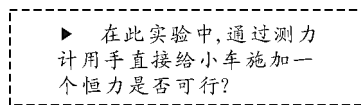 ▶ 在此实验中,通过测力
计用手直接给小车施加一
个恒力是否可行?